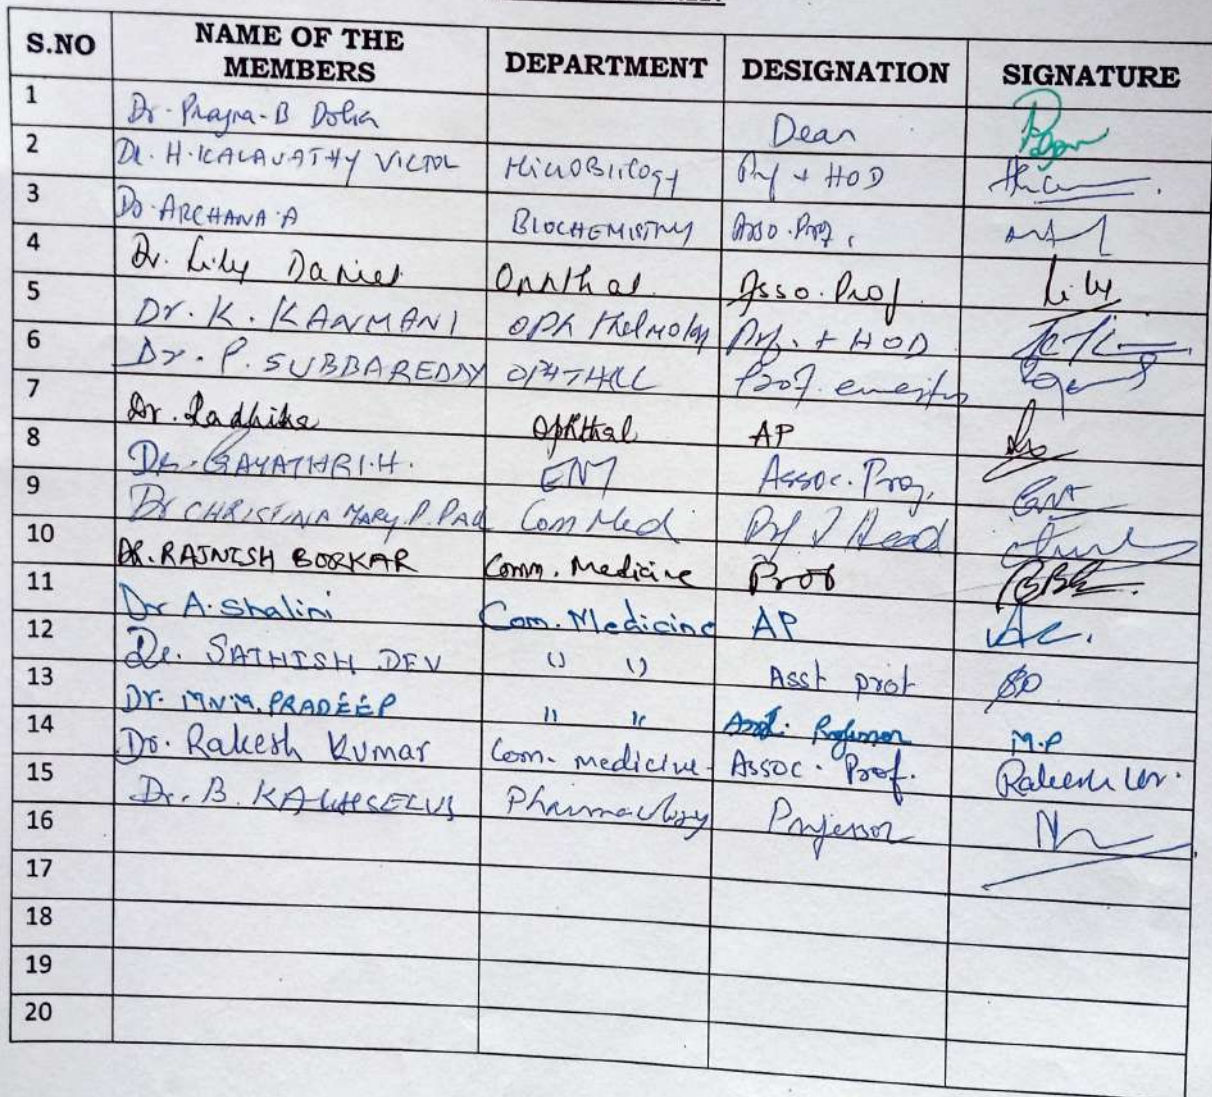 S.NO NAME OF THE MEMBERS DEPARTMENT DESIGNATION SIGNATURE
1 Dr. Prajna-B Dolia Dean
2 Dr. H. KALAVATHY VICTOR MicroBiology Prof + HOD
3 Dr. ARCHANA.A BIOCHEMISTRY Asso. Prof.
4 Dr. Lily Daniel Ophthal Asso. Prof Lily
5 Dr. K. KANMANI Ophthalmology Prof. + HOD
6 Dr. P. SUBBAREDDY OPHTHAL Prof. emeritus
7 Dr. Radhika Ophthal AP
8 Dr. GAYATHRI.H. ENT Assoc. Prof.
9 Dr CHRISTINA MARY.P.PAUL Com Med Prof & Head
10 DR. RAJNISH BORKAR Comm. Medicine Prof
11 Dr A. Shalini Com. Medicine AP
12 Dr. SATHISH DEV " " Asst prof
13 Dr. MNM. PRADEEP " " Asst. Professor M.P
14 Dr. Rakesh Kumar Com. medicine Assoc. Prof. Rakesh kr.
15 Dr. B. Pharmacology Professor
16
17
18
19
20